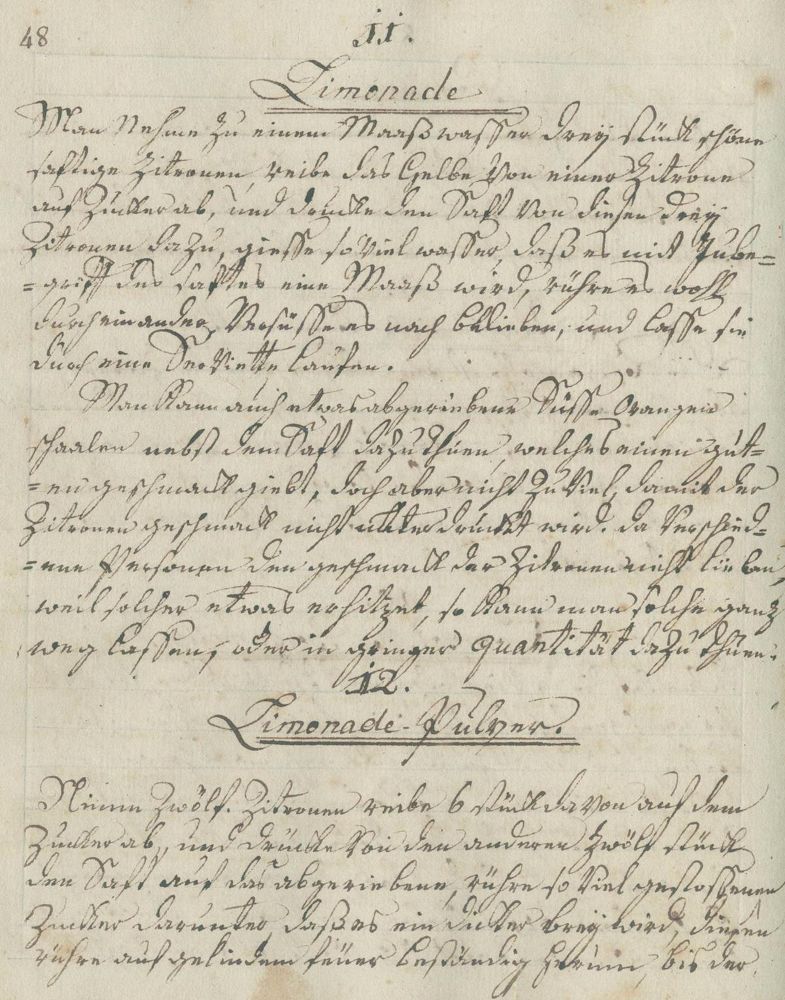 48
11.
Limonade
Man Nehme Zu einem Maaß wasser drey stück schöne
saftige Zitronen, reibe das Gelbe Von einer Zitrone
auf Zucker ab, und drucke den Saft Von diesen drey
Zitronen dazu, giesse so Viel wasser, daß es mit Inbe=
=griff des saftes eine Maaß wird, rühre es wohl
durch einander, Versüsse es nach belieben, und lasse sie
durch eine Serviette laufen.
Man kann auch etwas abgeriebene Süsse Orangen
schaalen nebst dem Saft dazu thuen, welches einen gut=
=en geschmack giebt, doch aber nicht Zu Viel, damit der
Zitronen geschmack nicht unterdrückt wird. da Verschied=
=ene Personen den geschmack der Zitronen nicht lieben,
weil solcher etwas erhitzet, so kann man solche ganz
weg lassen, oder in geringer Quantität dazu thuen.
12.
Limonade-Pulver.
Nimm Zwölf Zitronen reibe 6 stück davon auf dem
Zucker ab, und drücke Von den anderen Zwölf stück
den Saft auf das abgeriebene, rühre so Viel gestossenen
Zucker darunter, daß es ein dicker brey wird, diesen
rühre auf gelindem feuer beständig herum, bis der